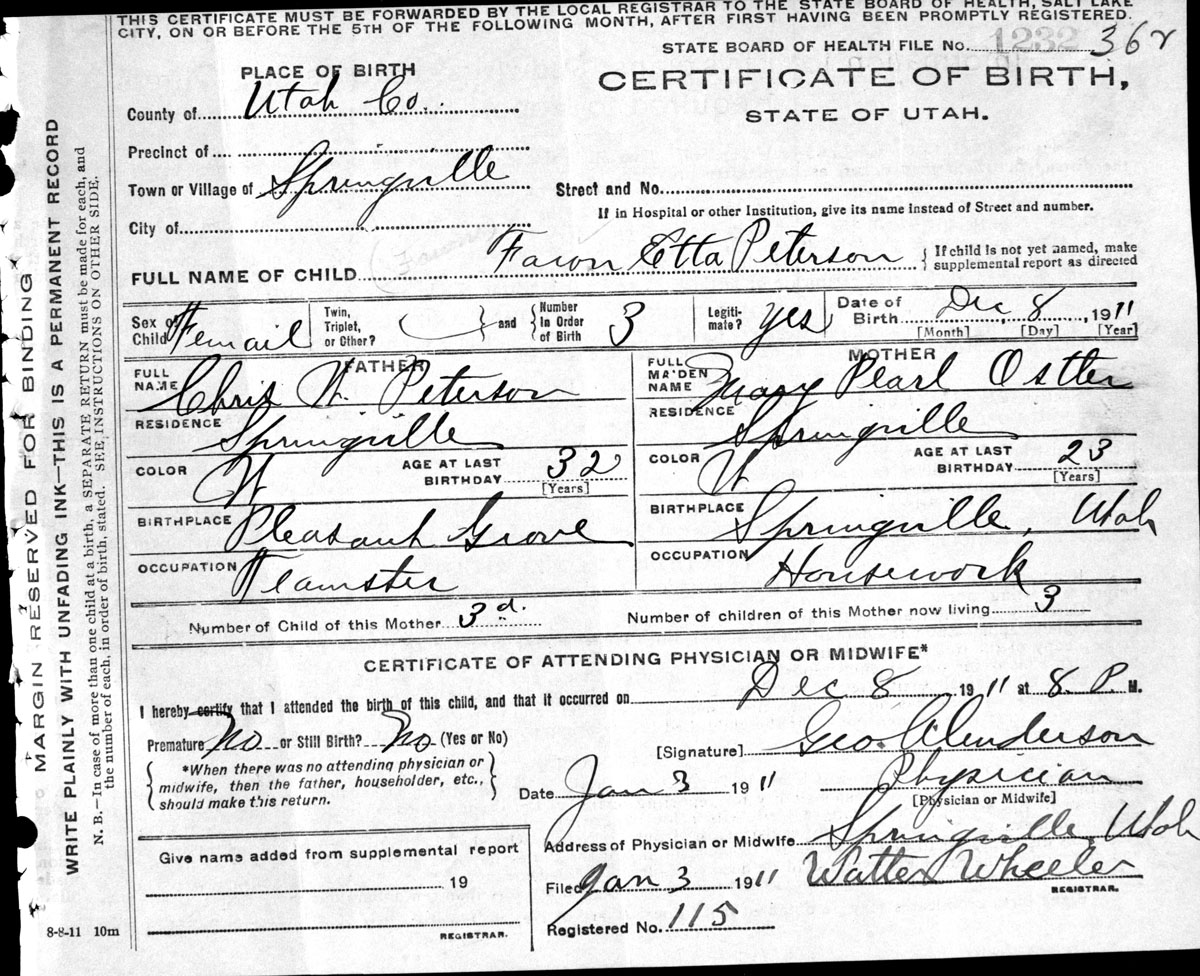 THIS CERTIFICATE MUST BE FORWARDED BY THE LOCAL REGISTRAR TO THE STATE BOARD OF HEALTH, SALT LAKE
CITY, ON OR BEFORE THE 5TH OF THE FOLLOWING MONTH, AFTER FIRST HAVING BEEN PROMPTLY REGISTERED.
STATE BOARD OF HEALTH FILE No. 1232 362
PLACE OF BIRTH
CERTIFICATE OF BIRTH,
STATE OF UTAH.
County of Utah Co.
Precinct of
Town or Village of Springville
Street and No.
If in Hospital or other Institution, give its name instead of Street and number.
City of
FULL NAME OF CHILD Fawn Etta Peterson { If child is not yet named, make
supplemental report as directed
Sex of Child Femail
Twin, Triplet, or Other?
and
Number in Order of Birth 3
Legiti-mate? yes
Date of Birth Dec, 8, 1911
[Month] [Day] [Year]
FATHER
FULL NAME Chris W. Peterson
RESIDENCE Springville
COLOR W
AGE AT LAST BIRTHDAY 32
[Years]
BIRTHPLACE Pleasant Grove
OCCUPATION Teamster
MOTHER
FULL MAIDEN NAME Mary Pearl Ostler
RESIDENCE Springville
COLOR W
AGE AT LAST BIRTHDAY 23
[Years]
BIRTHPLACE Springville, Utah
OCCUPATION Housework
Number of Child of this Mother 3d.
Number of children of this Mother now living 3
CERTIFICATE OF ATTENDING PHYSICIAN OR MIDWIFE*
I hereby certify that I attended the birth of this child, and that it occurred on Dec 8 1911 at 8 P. M.
Premature No or Still Birth? No (Yes or No)
[Signature] Geo. Anderson
*When there was no attending physician or
midwife, then the father, householder, etc.,
should make this return.
Date Jan 3 1911
Physician
[Physician or Midwife]
Address of Physician or Midwife Springville, Utah
Filed Jan 3 1911 Walter Wheeler
REGISTRAR.
Registered No. 115
Give name added from supplemental report
19
REGISTRAR.
8-8-11 10m
MARGIN RESERVED FOR BINDING
WRITE PLAINLY WITH UNFADING INK—THIS IS A PERMANENT RECORD
N. B.—In case of more than one child at a birth, a SEPARATE RETURN must be made for each, and
the number of each, in order of birth, stated. SEE INSTRUCTIONS ON OTHER SIDE.